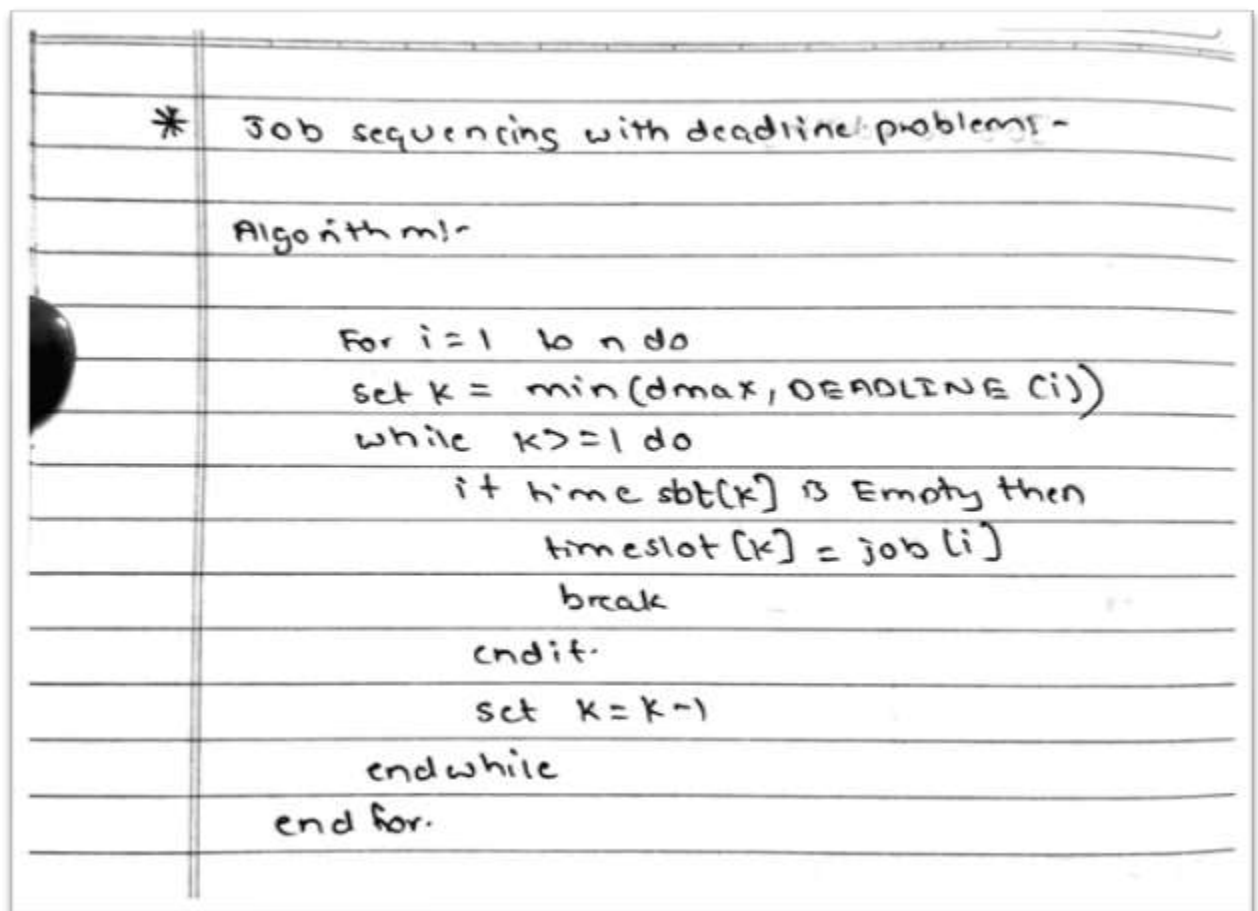 * Job sequencing with deadline problems-
Algorithm:-
For i = 1 to n do
set k = min(dmax, DEADLINE (i))
while k>=1 do
if time slot[k] is Empty then
timeslot [k] = job [i]
break
endif.
set k = k-1
endwhile
end for.